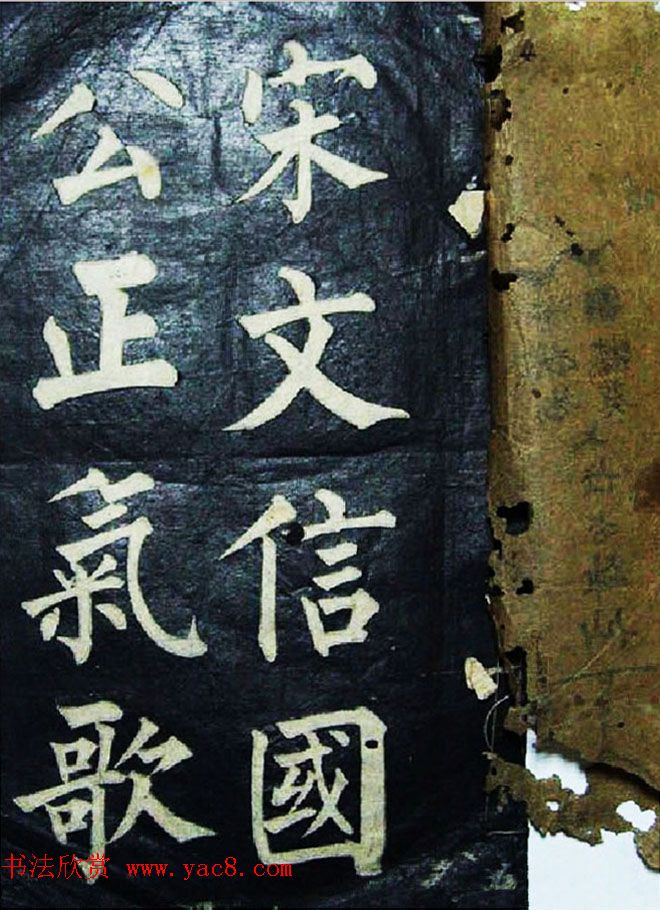 宋文信國
公正氣歌
书法欣赏 www.yac8.com